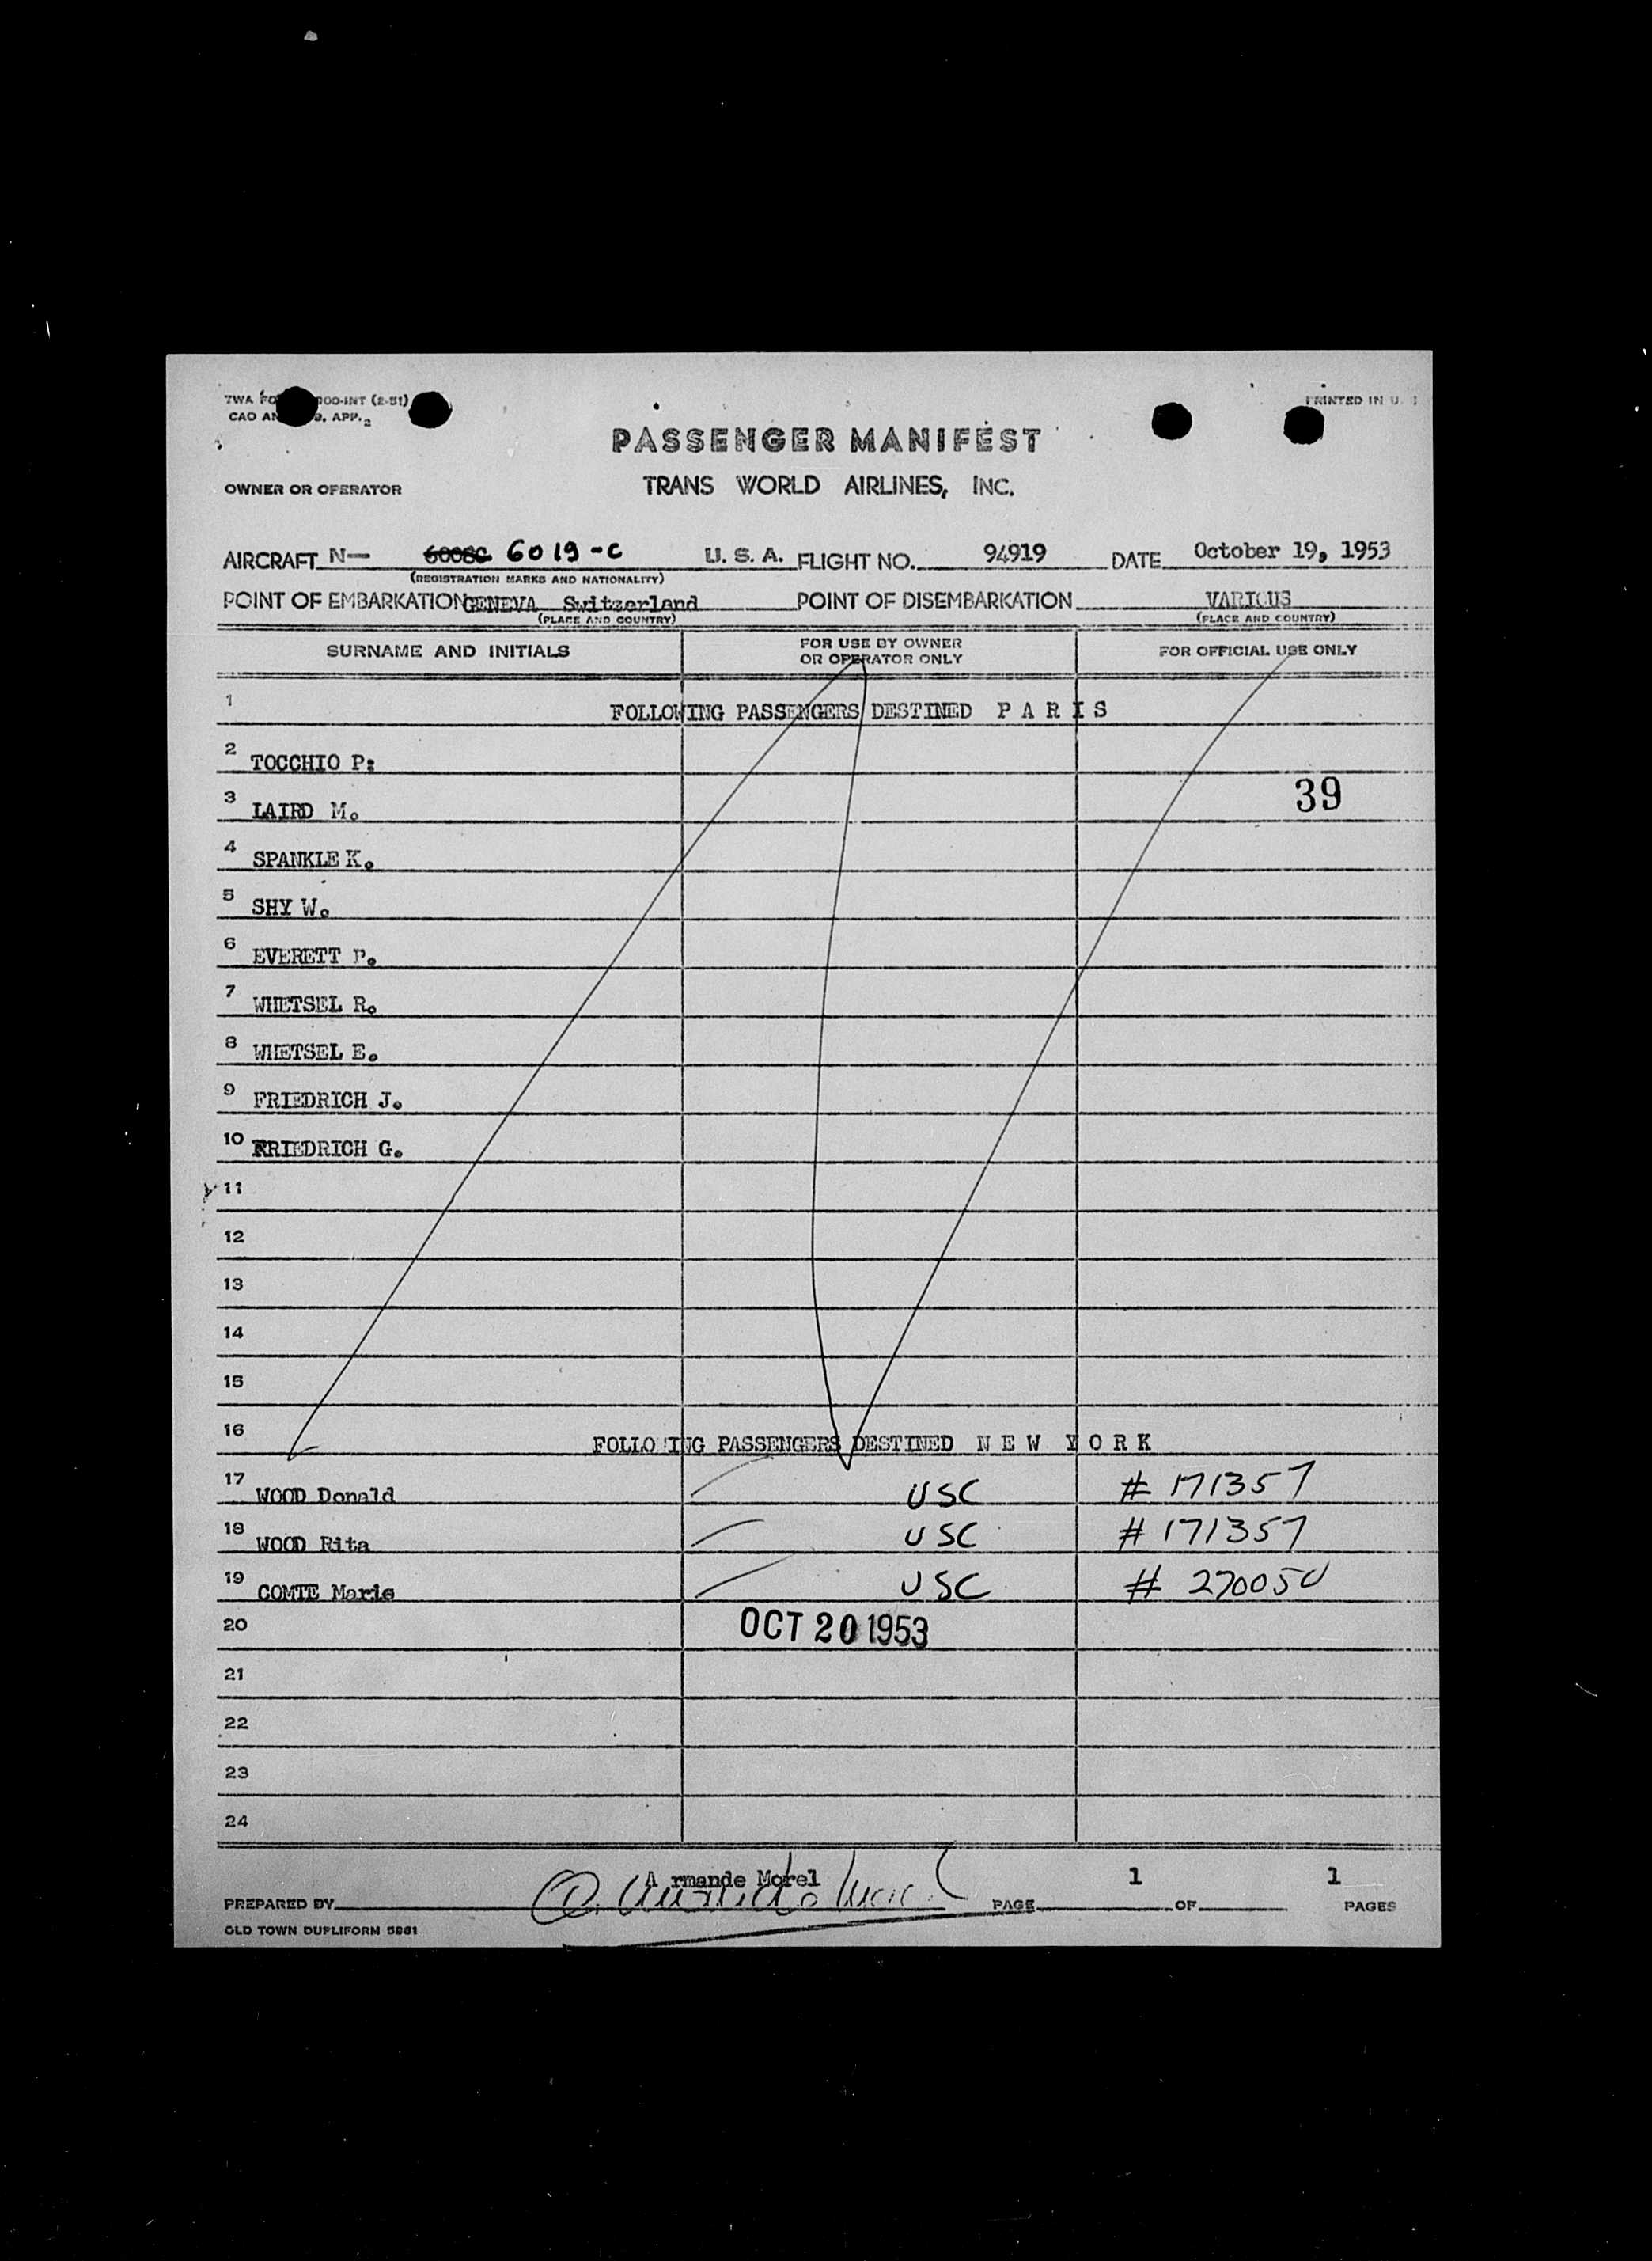 TWA FO 00-INT (2-51)
CAO AN 9, APP. 2
PRINTED IN U.
PASSENGER MANIFEST
OWNER OR OPERATOR TRANS WORLD AIRLINES, INC.
AIRCRAFT N— 6008C 6019-C U. S. A. FLIGHT NO. 94919 DATE October 19, 1953
(REGISTRATION MARKS AND NATIONALITY)
POINT OF EMBARKATION GENEVA Switzerland POINT OF DISEMBARKATION VARIOUS
(PLACE AND COUNTRY) (PLACE AND COUNTRY)
SURNAME AND INITIALS FOR USE BY OWNER OR OPERATOR ONLY FOR OFFICIAL USE ONLY
1 FOLLOWING PASSENGERS DESTINED P A R I S
2 TOCCHIO P:
3 LAIRD M. 39
4 SPANKLE K.
5 SHY W.
6 EVERETT P.
7 WHETSEL R.
8 WHETSEL E.
9 FRIEDRICH J.
10 FRIEDRICH G.
11
12
13
14
15
16 FOLLO ING PASSENGERS DESTINED N E W Y O R K
17 WOOD Donald USC # 171357
18 WOOD Rita USC # 171357
19 COMTE Marie USC # 270050
20 OCT 20 1953
21
22
23
24
PREPARED BY A rmande Morel PAGE 1 OF 1 PAGES
OLD TOWN DUPLIFORM 5981